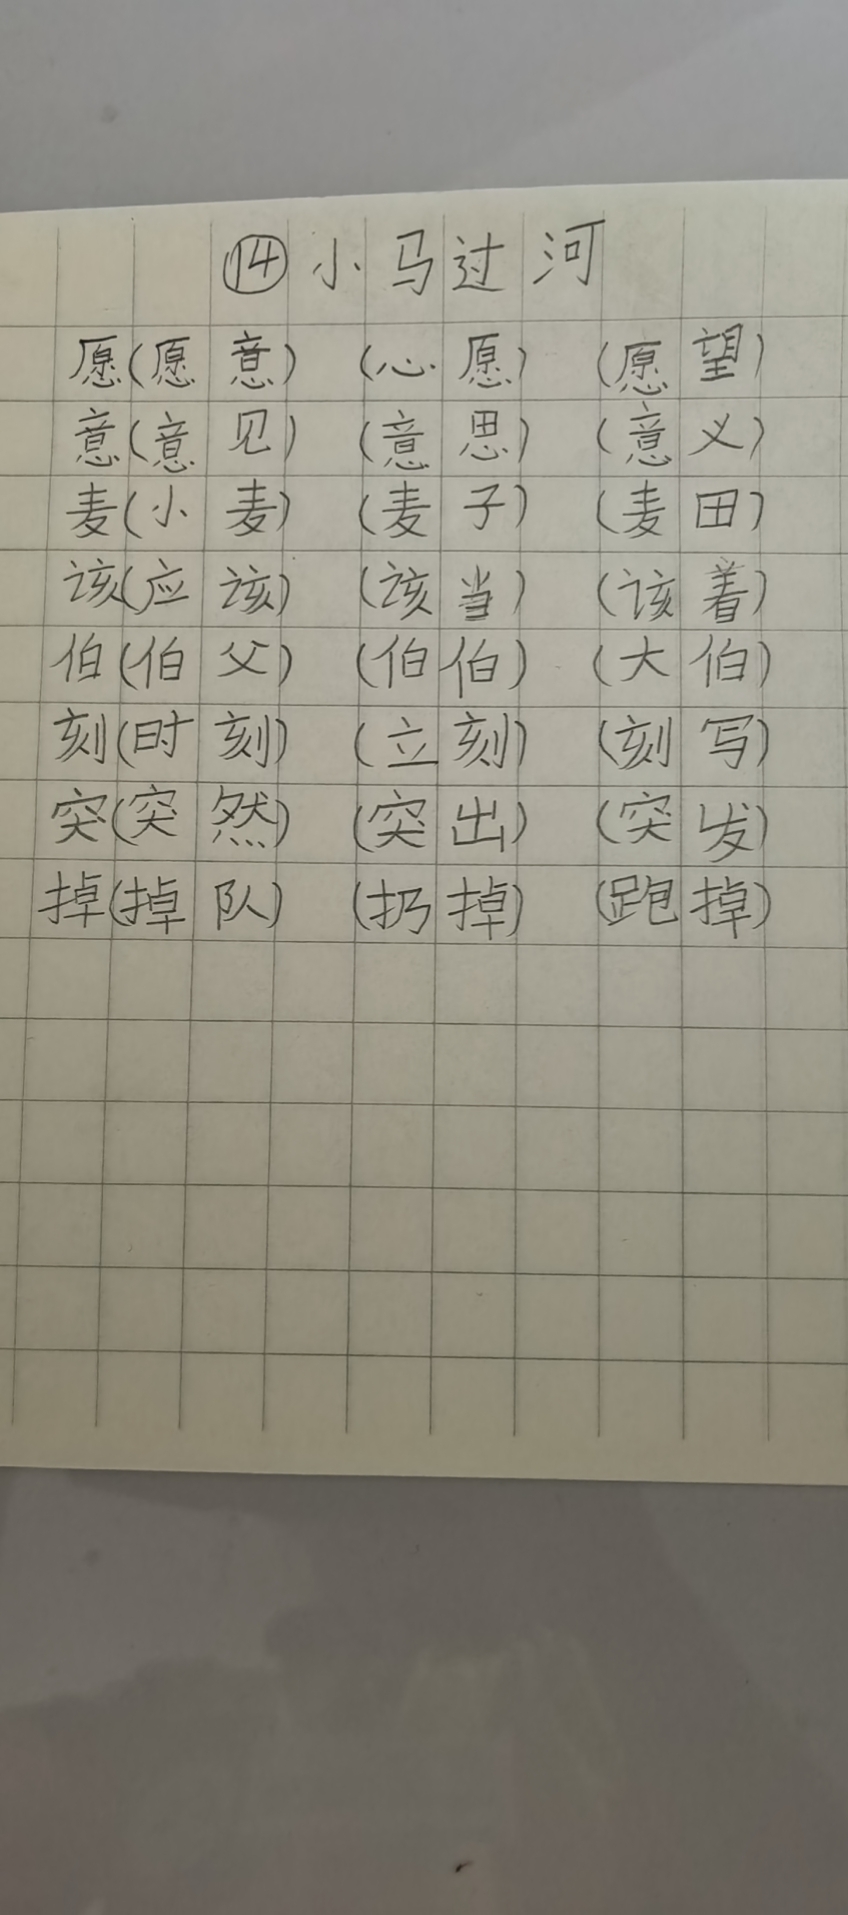 ⑭小马过河
愿(愿意) (心愿) (愿望)
意(意见) (意思) (意义)
麦(小麦) (麦子) (麦田)
该(应该) (该当) (该着)
伯(伯父) (伯伯) (大伯)
刻(时刻) (立刻) (刻写)
突(突然) (突出) (突发)
掉(掉队) (扔掉) (跑掉)